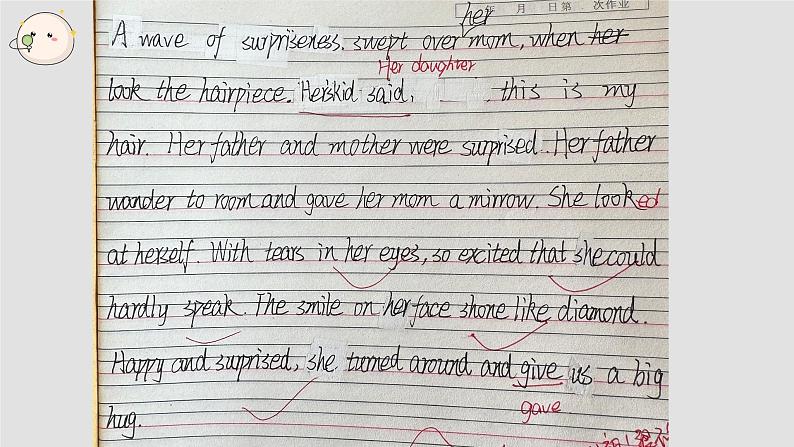 年 月 日第 次作业
her
A wave of surpriseness. swept over mom, when her
Her daughter
look the hairpiece. Her'skid said, this is my
hair. Her father and mother were surprised. Her father
wander to room and gave her mom a mirrow. She looked
at herself. With tears in her eyes, so excited that she could
hardly speak. The smile on her face shone like diamond.
Happy and surprised, she turned around and give us a big
gave
hug.